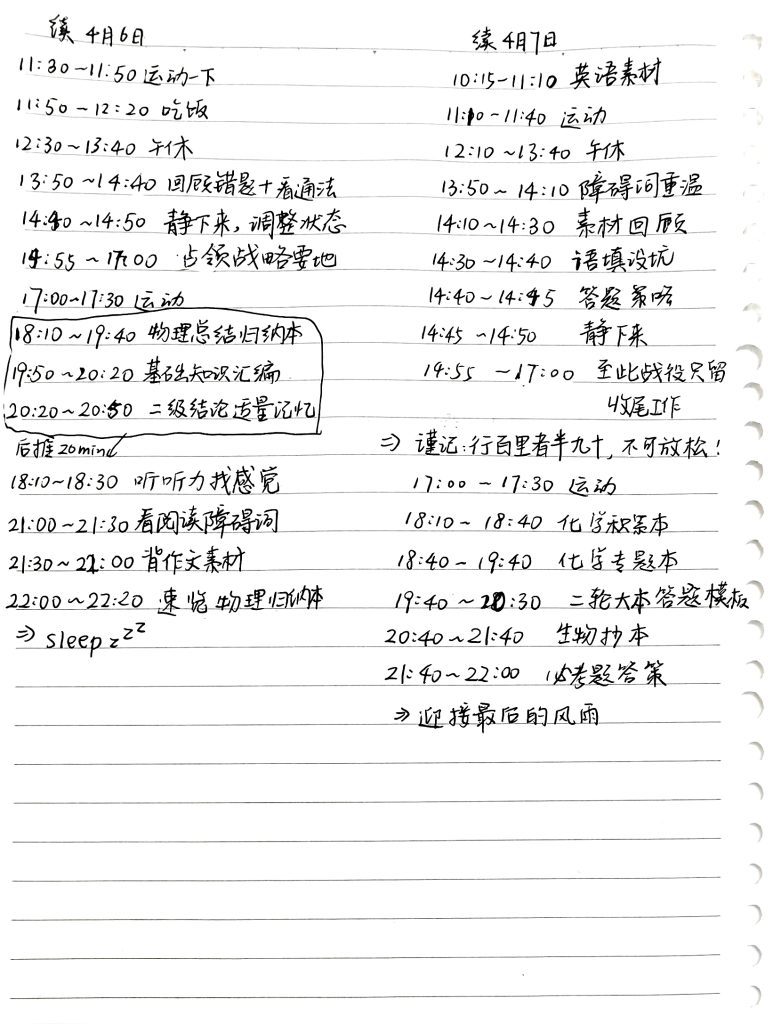 续 4月6日
11:30~11:50 运动一下
11:50~12:20 吃饭
12:30~13:40 午休
13:50~14:40 回顾错题+看通法
14:40~14:50 静下来,调整状态
14:55~17:00 占领战略要地
17:00~17:30 运动
18:10~19:40 物理总结归纳本
19:50~20:20 基础知识汇编
20:20~20:50 二级结论适量记忆
后推20min
18:10~18:30 听听力找感觉
21:00~21:30 看阅读障碍词
21:30~22:00 背作文素材
22:00~22:20 速览物理归纳本
⇒ sleep zzz
续 4月7日
10:15-11:10 英语素材
11:10-11:40 运动
12:10~13:40 午休
13:50~14:10 障碍词重温
14:10~14:30 素材回顾
14:30~14:40 语填设坑
14:40~14:45 答题策略
14:45~14:50 静下来
14:55~17:00 至此战役只留
收尾工作
⇒ 谨记:行百里者半九十,不可放松!
17:00~17:30 运动
18:10~18:40 化学积累本
18:40~19:40 化学专题本
19:40~20:30 二轮大本答题模板
20:40~21:40 生物抄本
21:40~22:00 必考题答策
⇒ 迎接最后的风雨